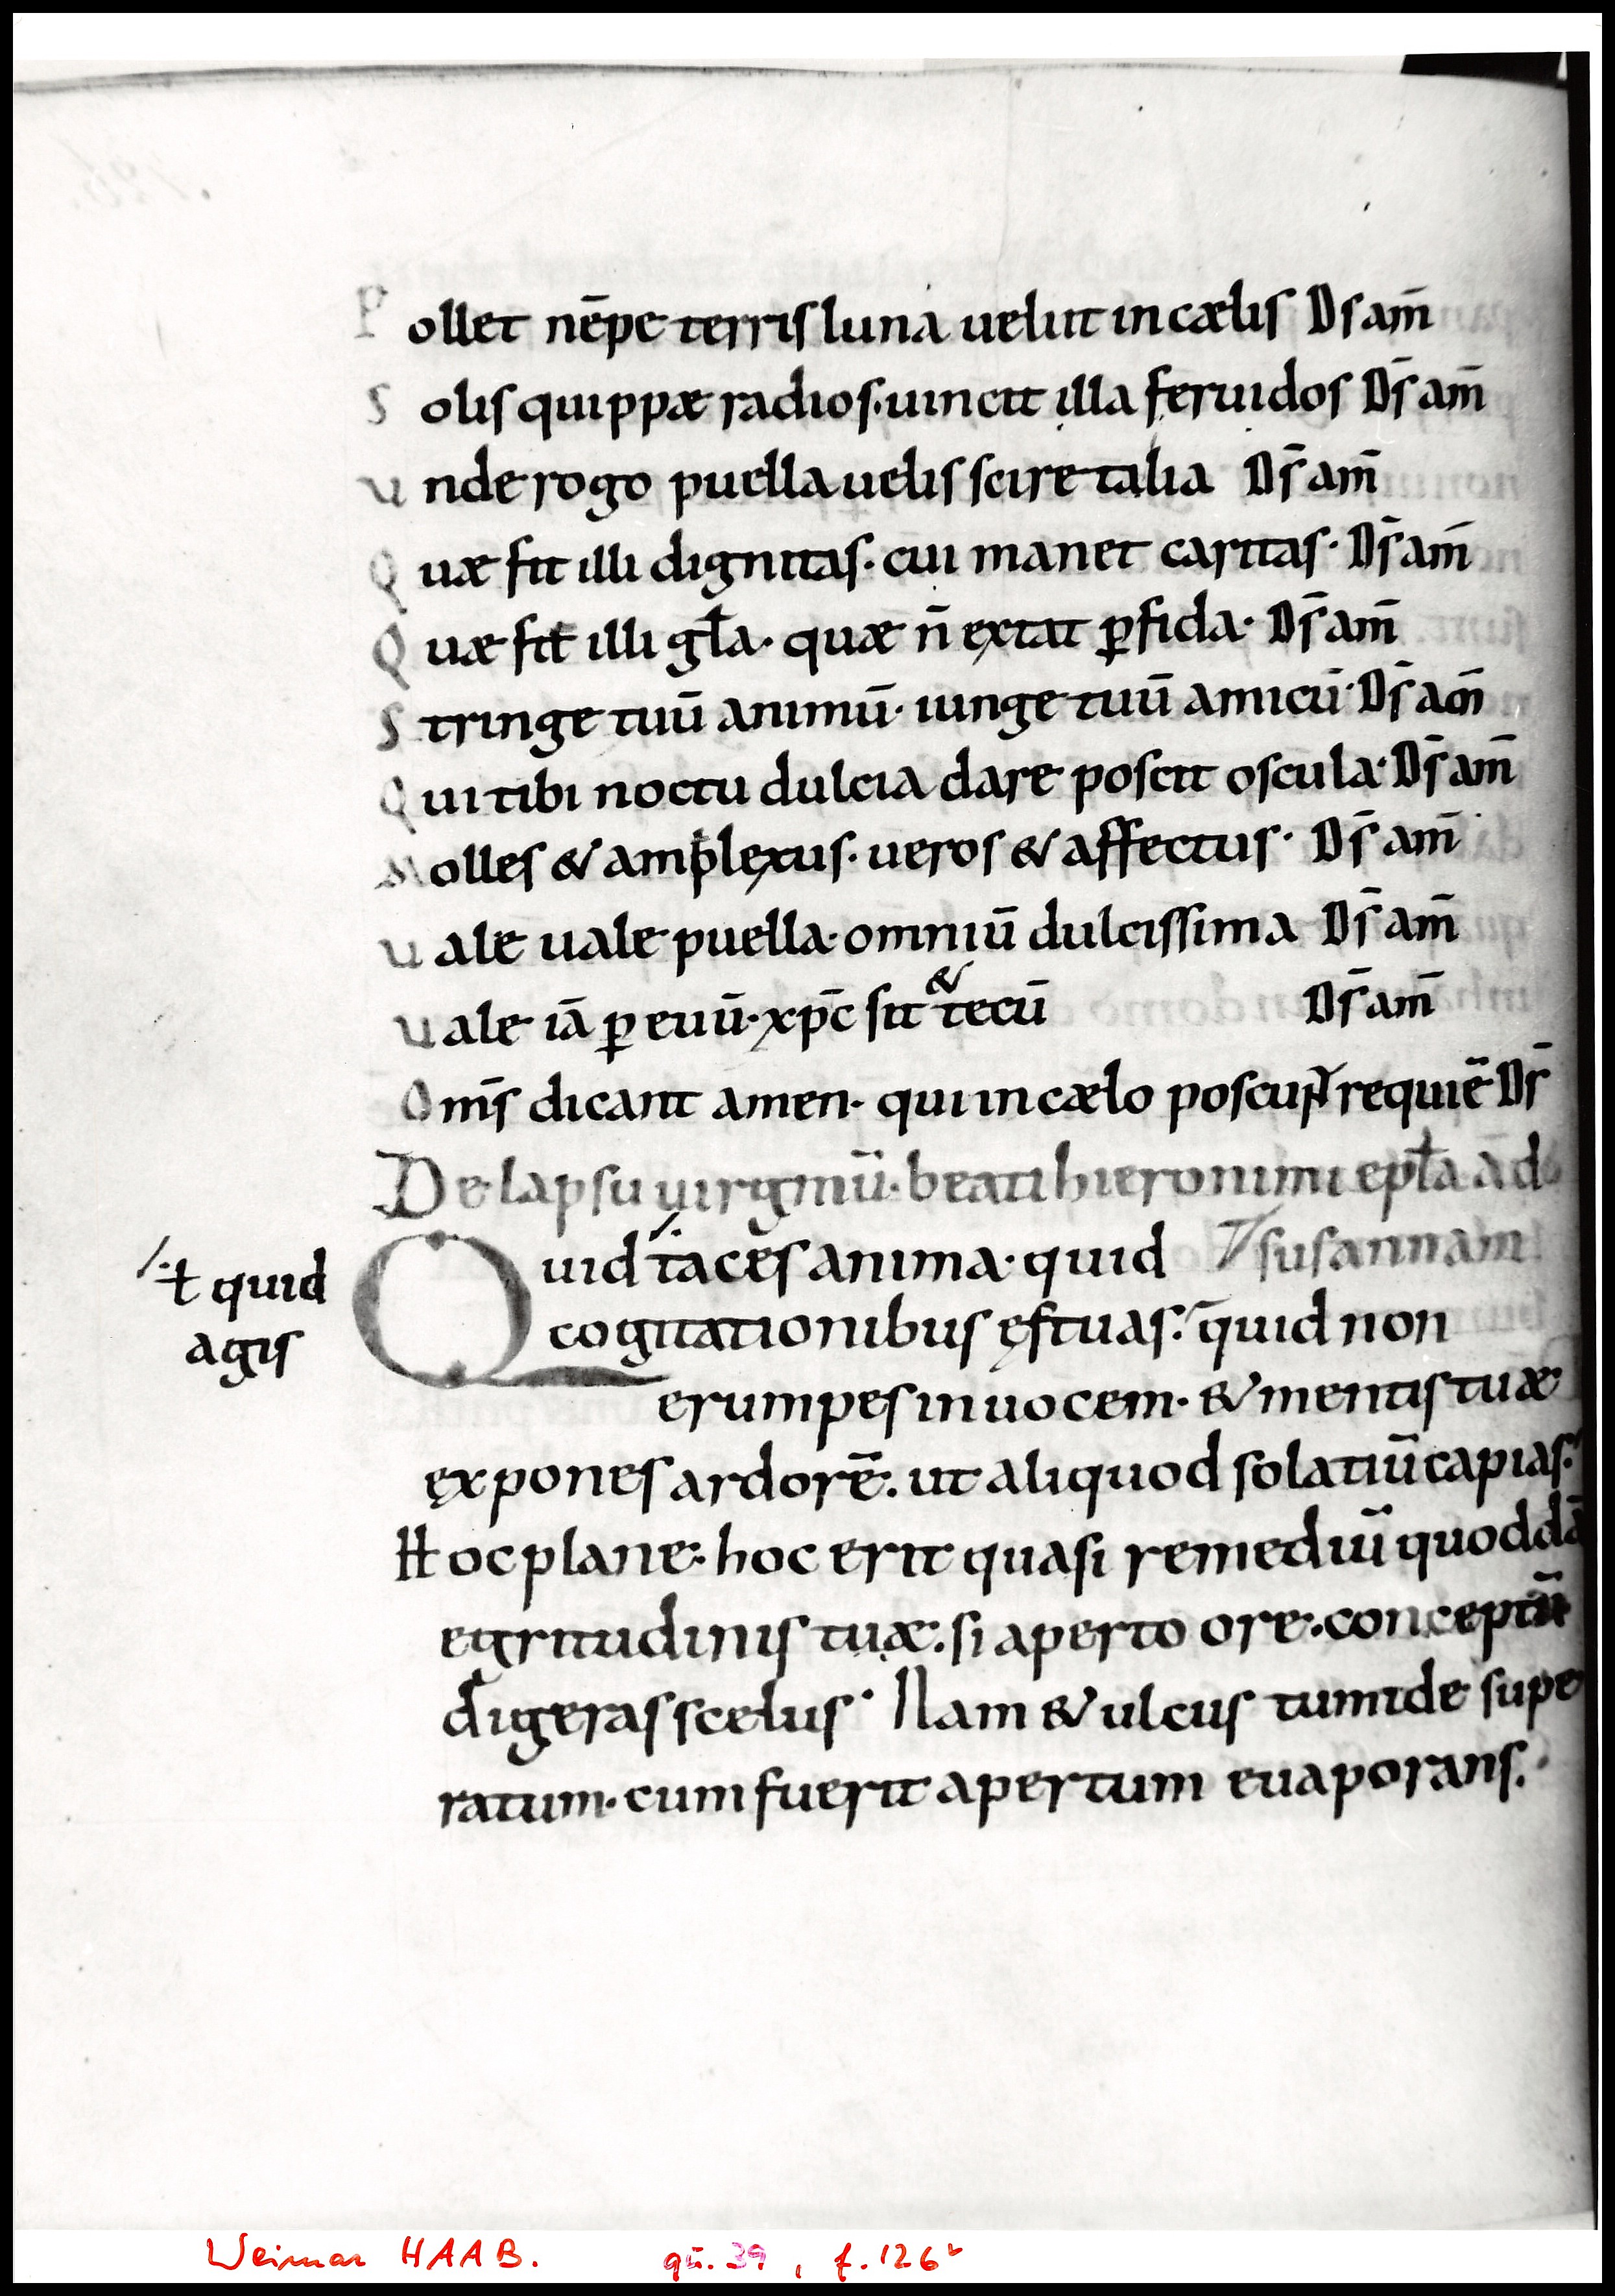 Pollet nēpe terris luna uelut in cælis D̄s am̄
Solis quippæ radios· uincit illa feruidos D̄s am̄
unde rogo puella uelis scire talia D̄s am̄
Quæ sit illi dignitas· cui manet caritas· D̄s am̄
Quæ sit illi gl̄a· quæ n̄ extat ꝑfida· D̄s am̄
Stringe tuū animū· iunge tuū amicū· D̄s am̄
Qui tibi noctu dulcia dare poscit oscula· D̄s am̄
Molles & amplexus· ueros & affectus· D̄s am̄
uale uale puella· omniū dulcissima D̄s am̄
uale iā ꝑ euū· xp̄c sit & tecū D̄s am̄
Om̄s dicant amen· qui in cælo poscunt requiē D̄s
De lapsu uirginū· beati hieronimi epl̄a ad
Quid taces anima· quid susannam
ł quid
agis
cogitationibus ęstuas· quid non
erumpes in uocem· & mentis tuæ
expones ardorē· ut aliquod solatiū capias·
Hoc plane· hoc erit quasi remediū quoddā
egritudinis tuæ· si aperto ore· conceptū
digeras scelus· Nam & ulcus tumide supe
ratum· cum fuerit apertum euaporans·
Weimar HAAB. qu. 39, f. 126v